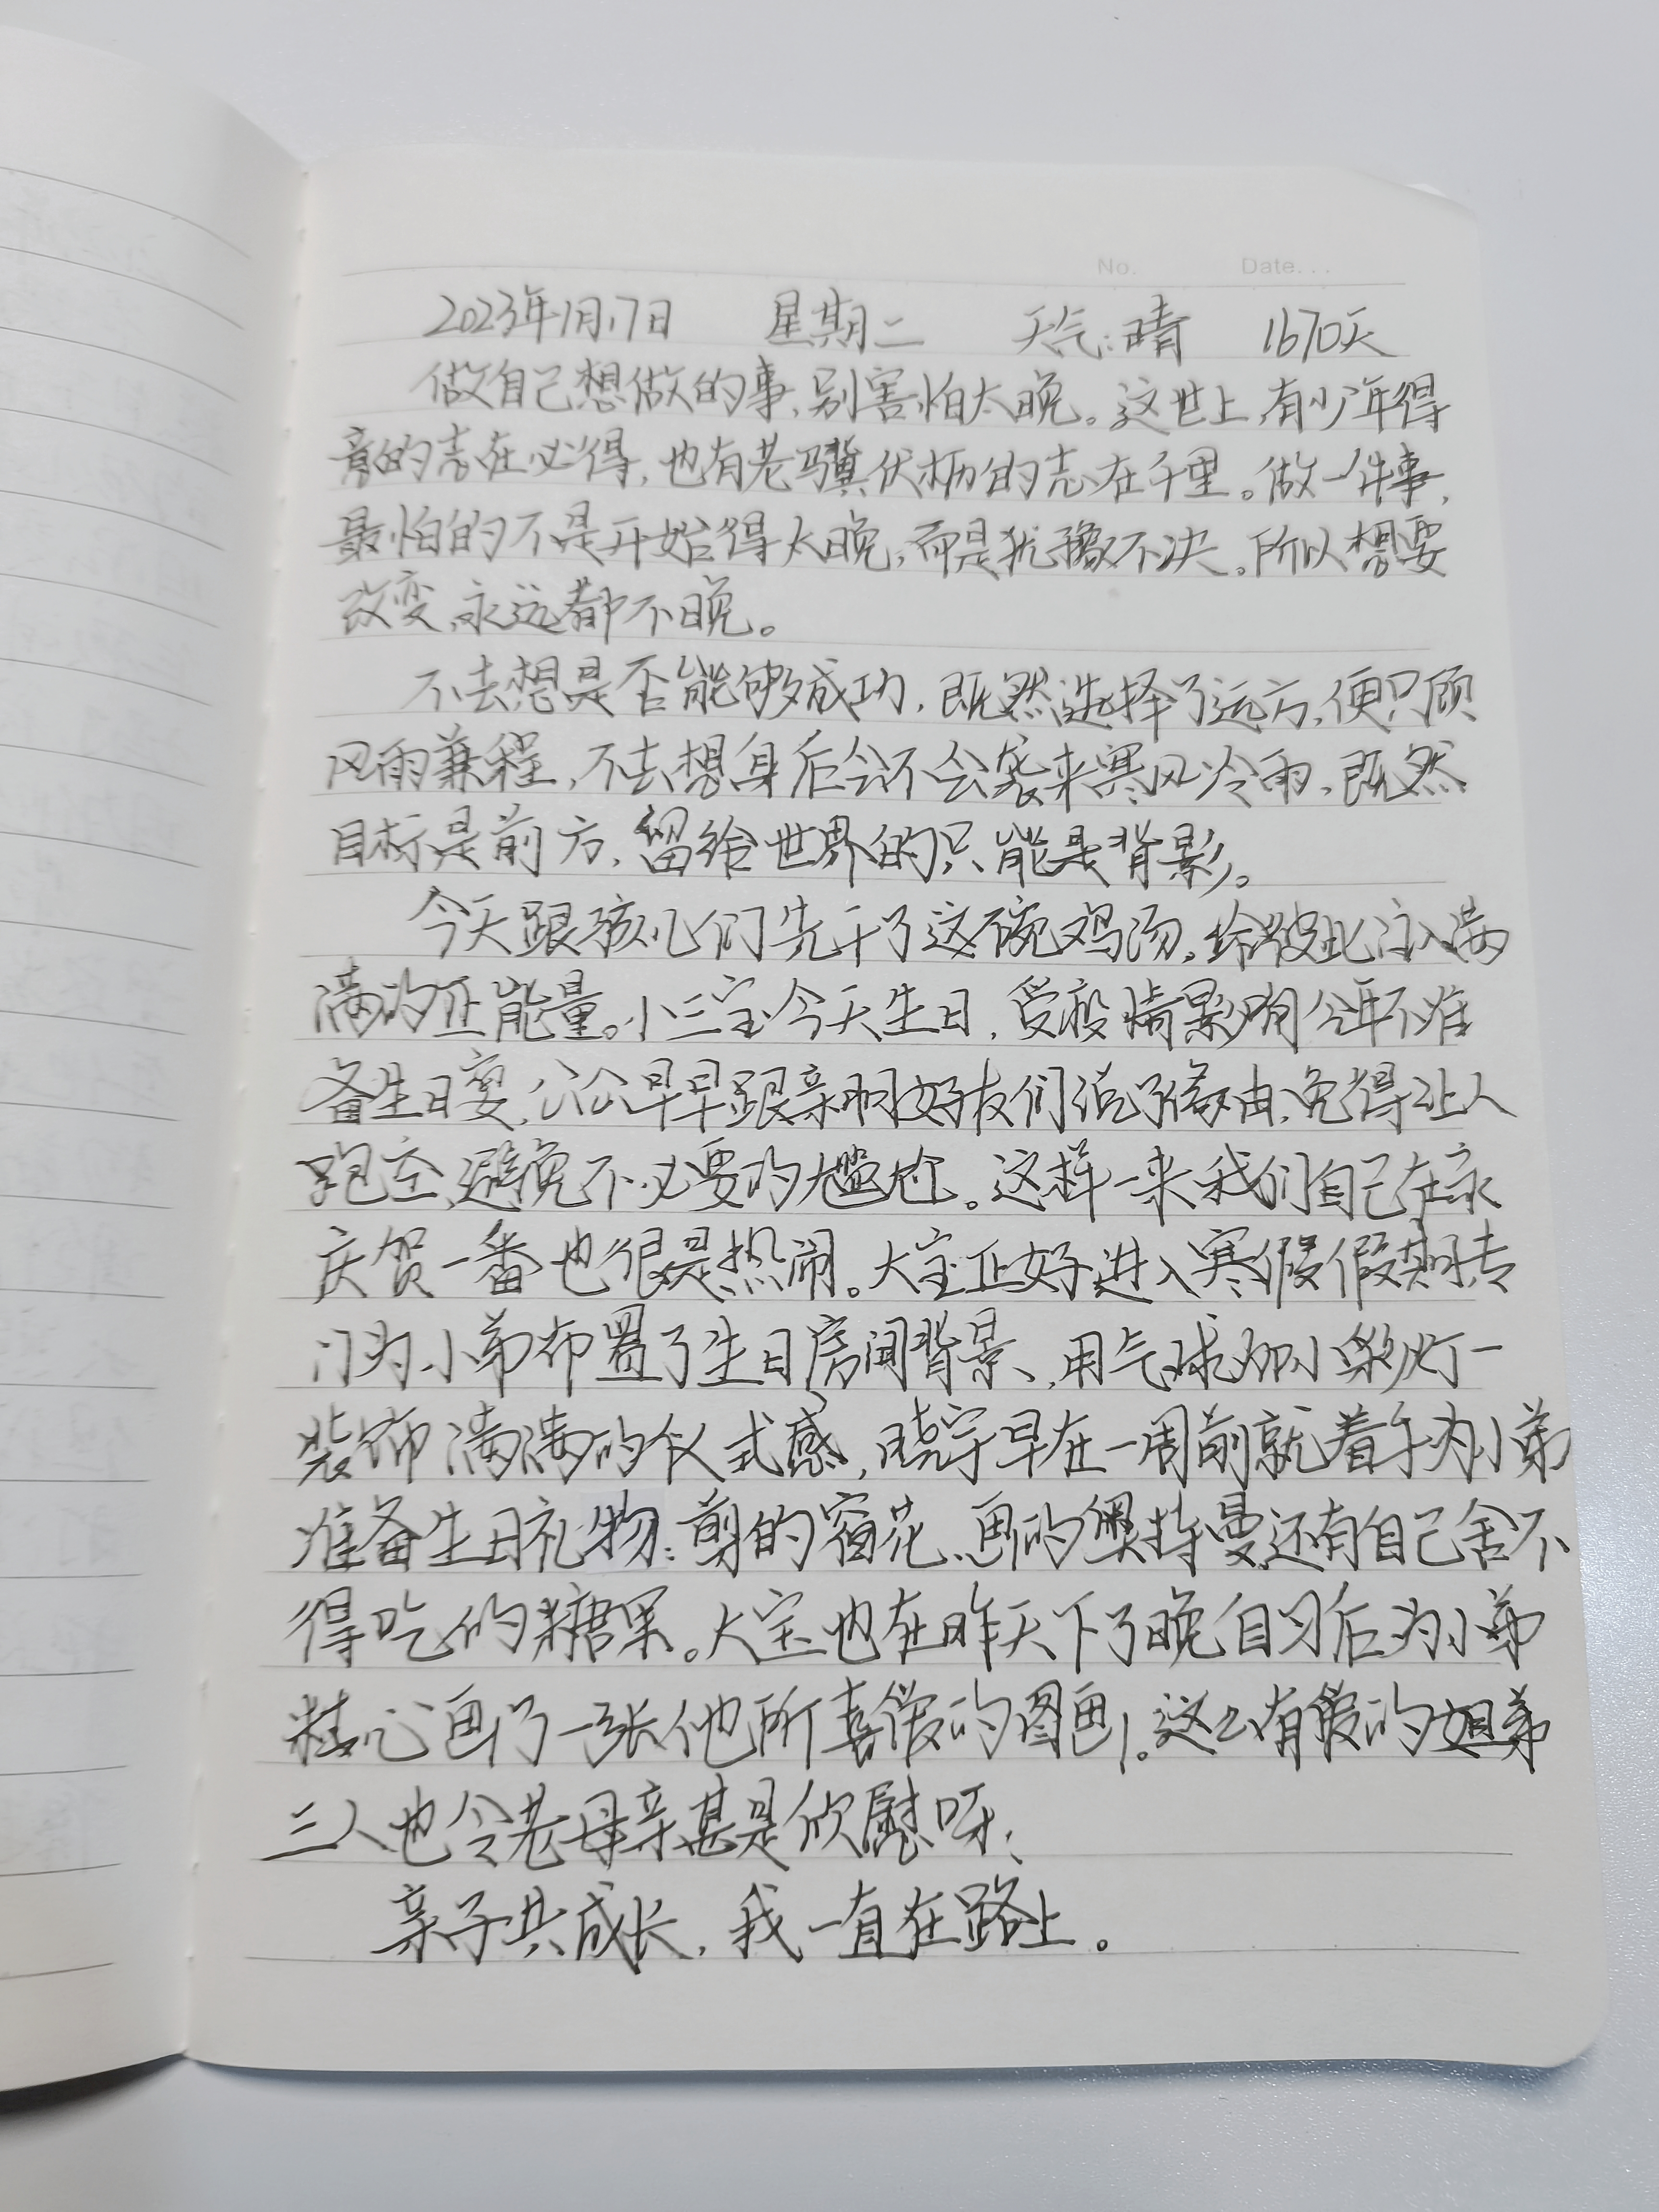 No. Date...
2023年1月17日 星期二 天气:晴 1670天
做自己想做的事,别害怕太晚。这世上,有少年得
意的志在必得,也有老骥伏枥的志在千里。做一件事,
最怕的不是开始得太晚,而是犹豫不决。所以想要
改变,永远都不晚。
不去想是否能够成功,既然选择了远方,便只顾
风雨兼程,不去想身后会不会袭来寒风冷雨,既然
目标是前方,留给世界的只能是背影。
今天跟孩儿们先干了这碗鸡汤,给彼此注入满
满的正能量。小三宝今天生日,受疫情影响今年不准
备生日宴,公公早早跟亲朋好友们说了缘由,免得让人
跑空,避免不必要的尴尬。这样一来我们自己在家
庆贺一番也很是热闹。大宝正好进入寒假假期,专
门为小弟布置了生日房间背景、用气球加小彩灯一
装饰满满的仪式感,晓宇早在一周前就着手为小弟
准备生日礼物:剪的窗花、画的奥特曼还有自己舍不
得吃的糖果。大宝也在昨天下了晚自习后为小弟
精心画了一张他所喜爱的图画。这么有爱的姐弟
三人也令老母亲甚是欣慰呀、
亲子共成长,我一直在路上。